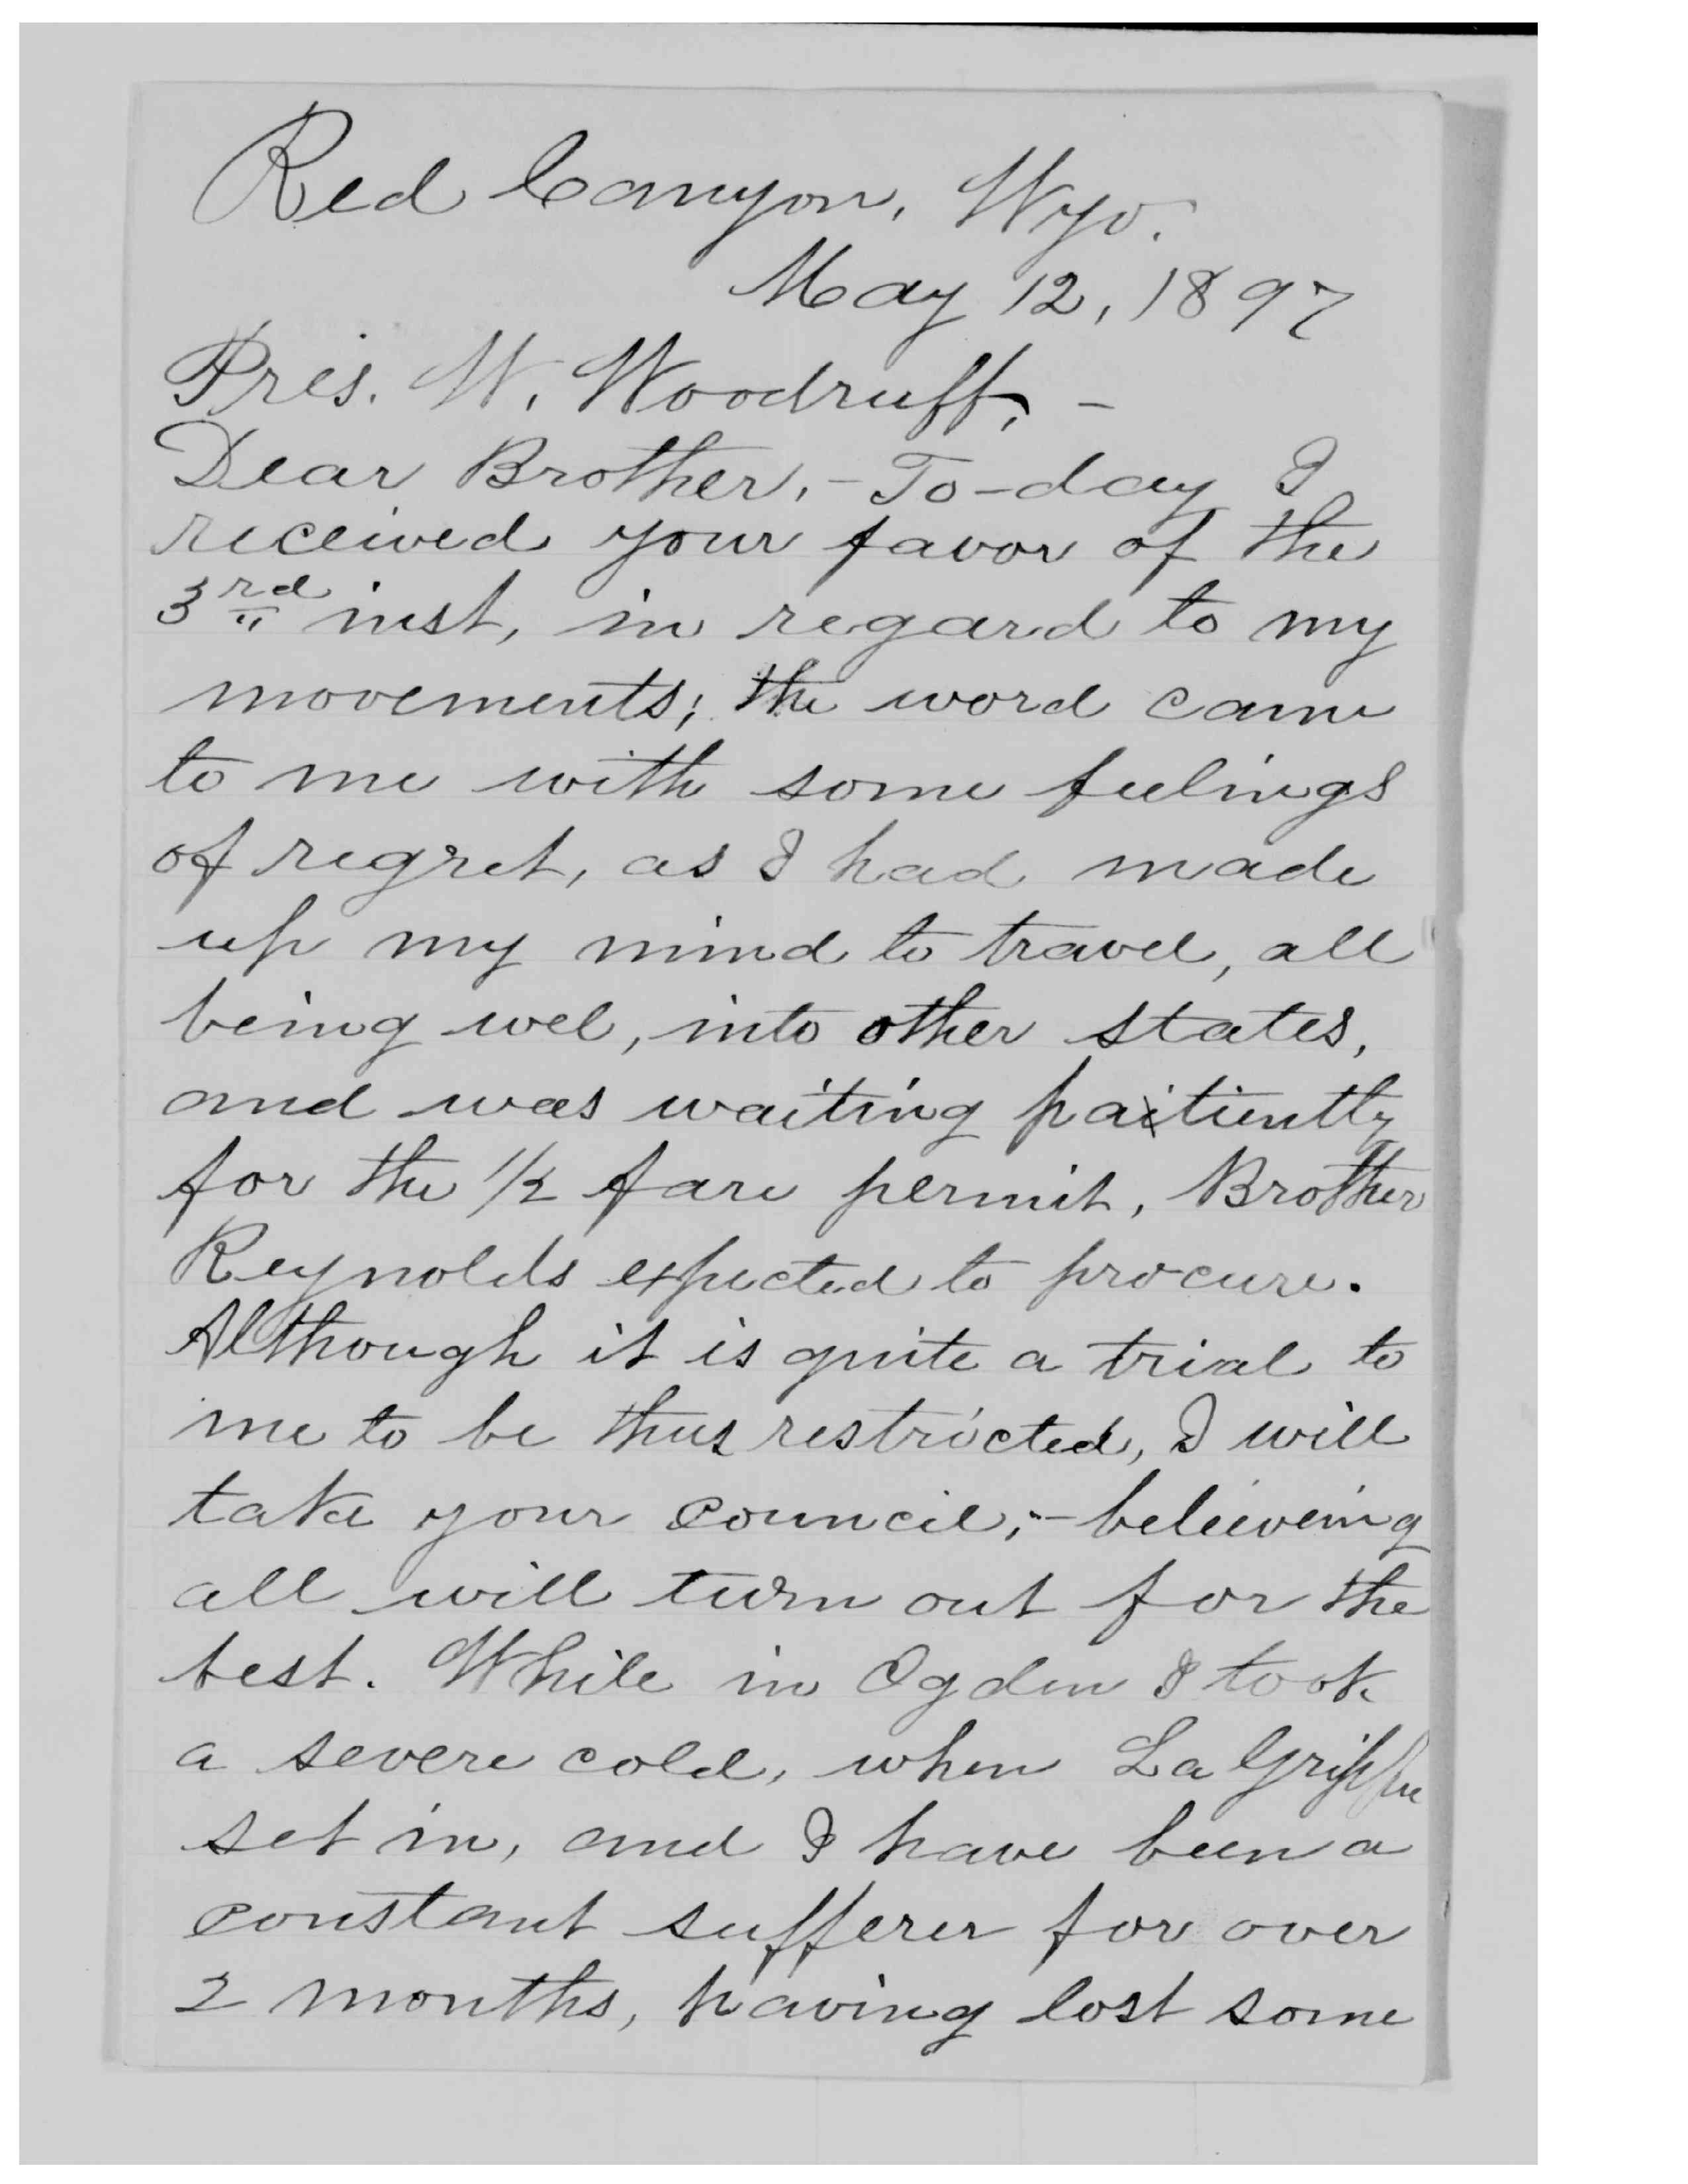 Red Canyon, Wyo.
May 12, 1897
Pres. W. Woodruff, –
Dear Brother, – To-day I
received your favor of the
3rd inst, in regard to my
movements; the word came
to me with some feelings
of regret, as I had made
up my mind to travel, all
being wel, into other states,
and was waiting paitiently
for the 1/2 fare permit, Brother
Reynolds expected to procure.
Although it is quite a trial to
me to be thus restricted, I will
take your council, – beleiveing
all will turn out for the
best. While in Ogden I took
a severe cold, when La Grippe
set in, and I have been a
constant sufferer for over
2 months, having lost some